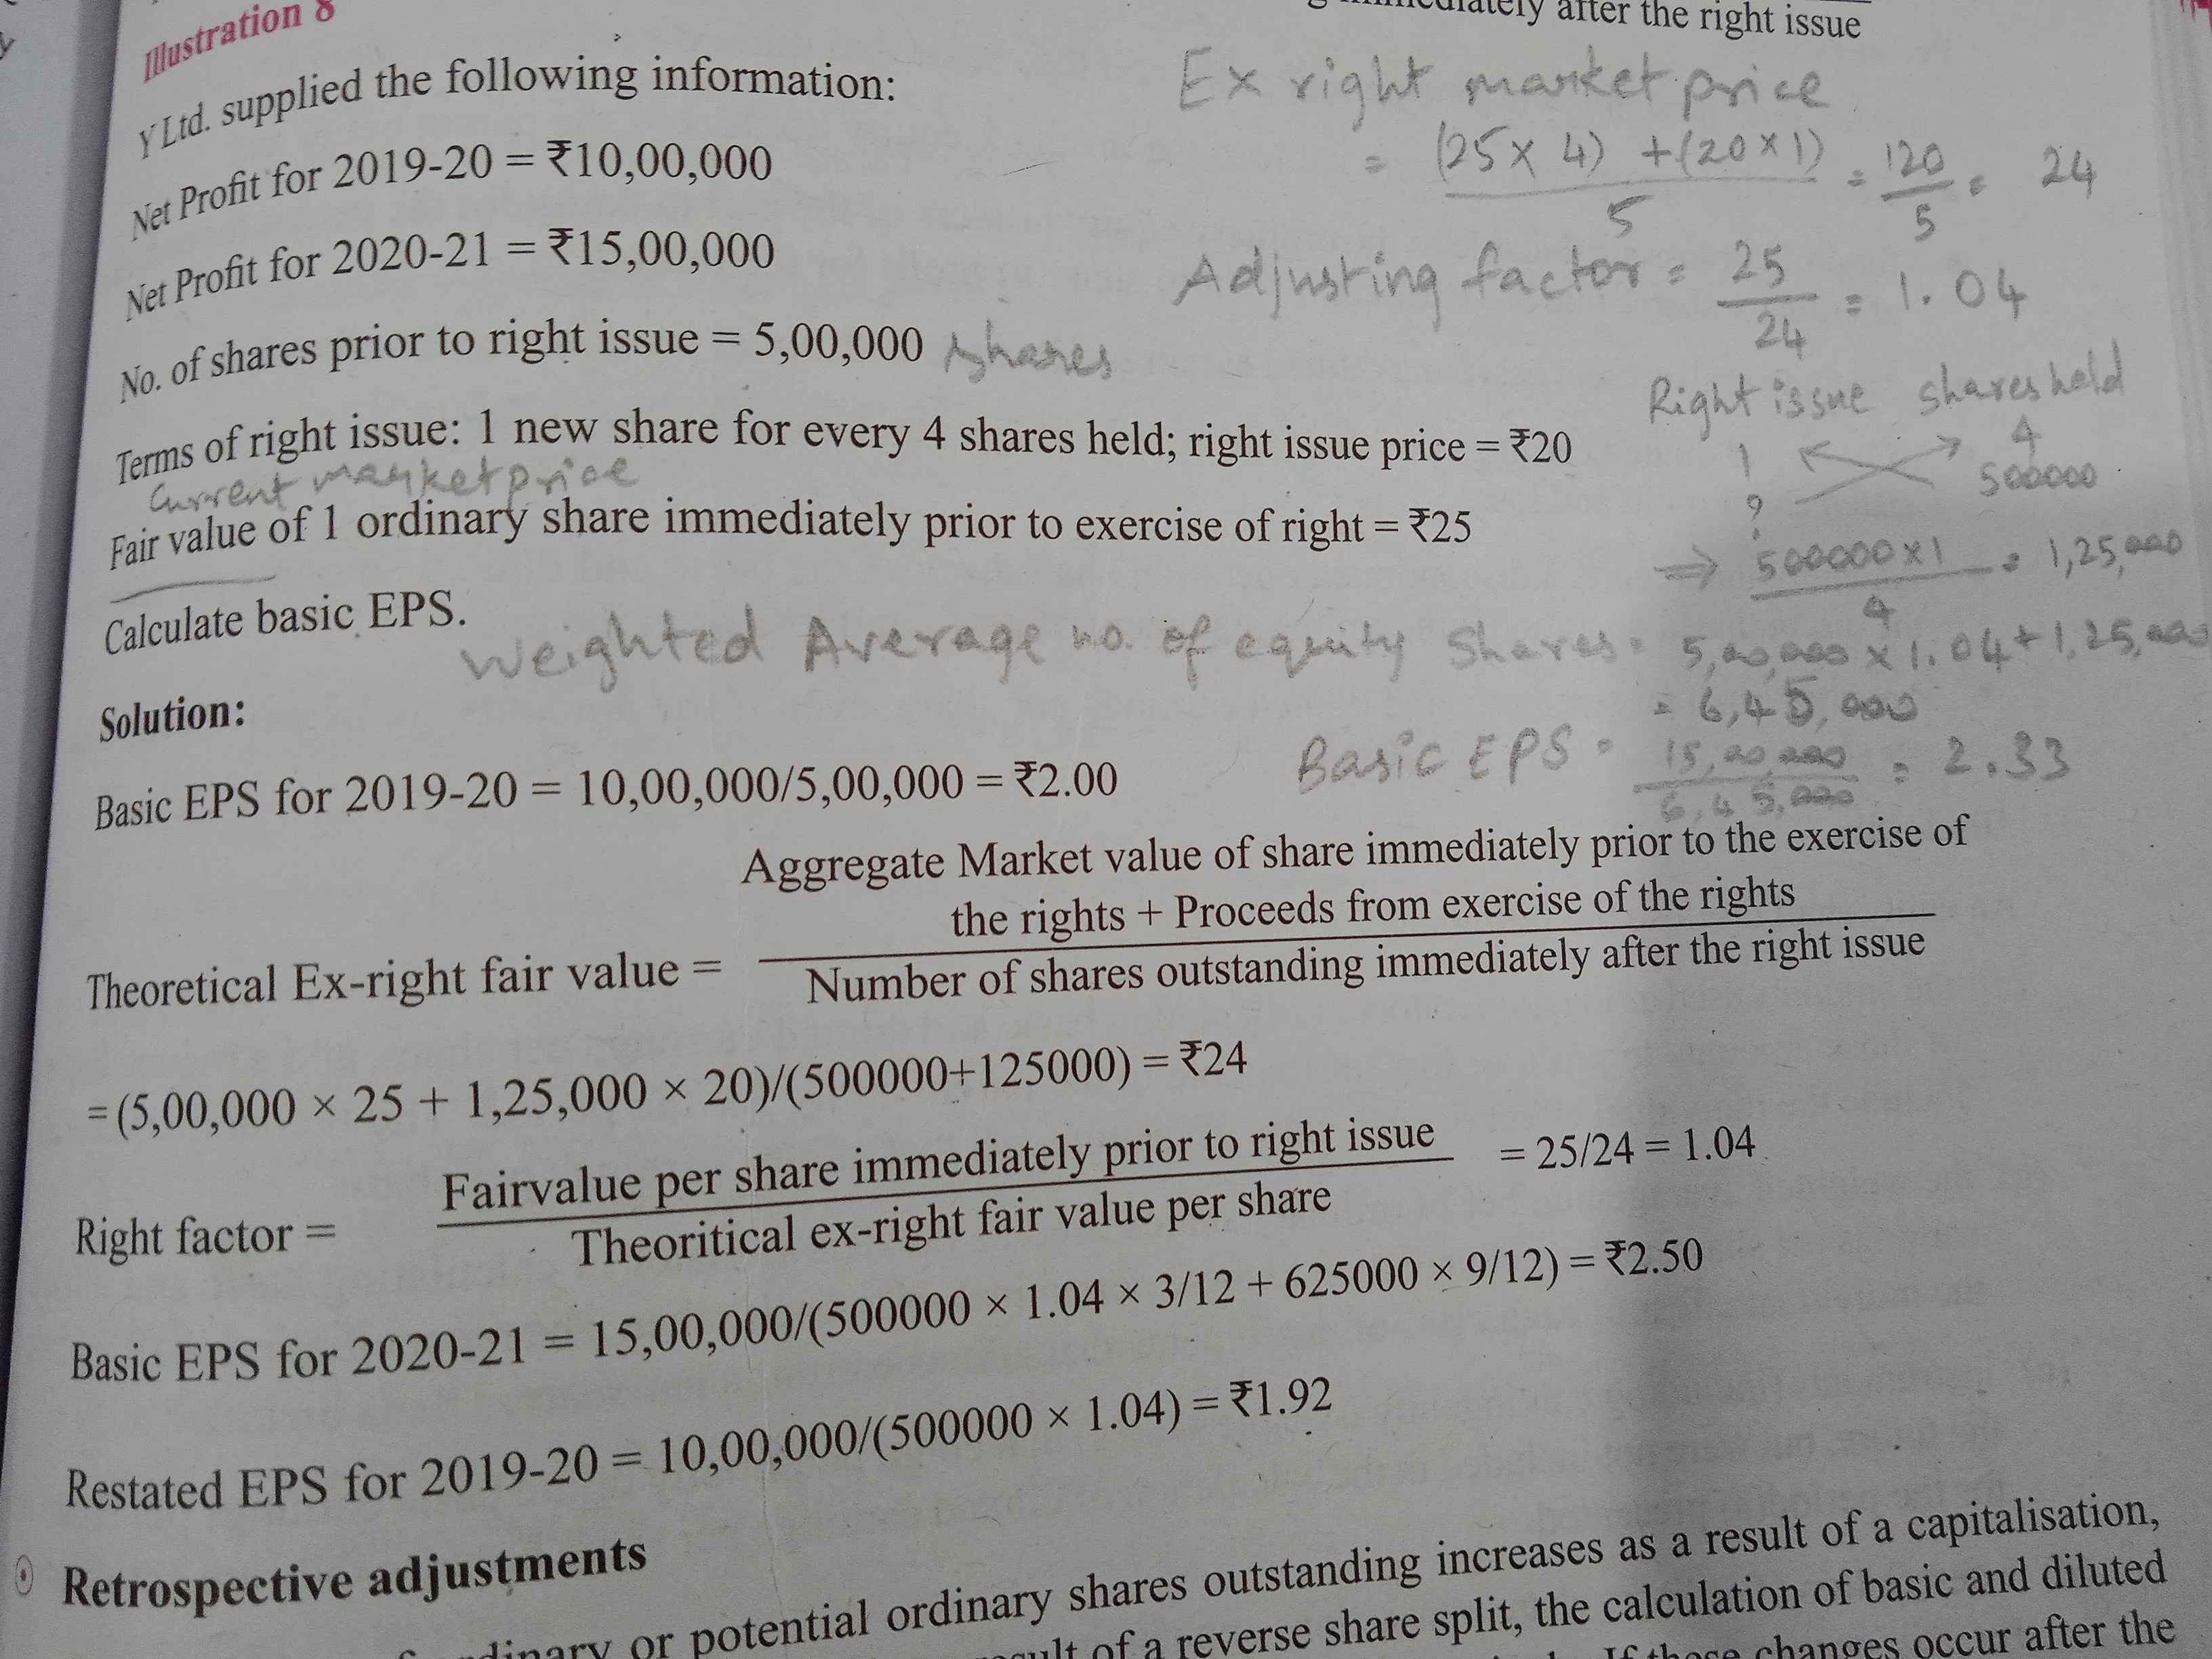 Illustration 8
immediately after the right issue
Y Ltd. supplied the following information:
Ex right market price
Net Profit for 2019-20 = ₹10,00,000
= (25 x 4) + (20 x 1) / 5 = 120 / 5 = 24
Net Profit for 2020-21 = ₹15,00,000
Adjusting factor = 25 / 24 = 1.04
No. of shares prior to right issue = 5,00,000 shares
Right issue shares held
1 4
? 500000
Terms of right issue: 1 new share for every 4 shares held; right issue price = ₹20
Current market price
Fair value of 1 ordinary share immediately prior to exercise of right = ₹25
⇒ 500000 x 1 / 4 = 1,25,000
Calculate basic EPS.
Weighted Average no. of equity shares = 5,00,000 x 1.04 + 1,25,000
= 6,45,000
Solution:
Basic EPS = 15,00,000 / 6,45,000 = 2.33
Basic EPS for 2019-20 = 10,00,000/5,00,000 = ₹2.00
Aggregate Market value of share immediately prior to the exercise of
the rights + Proceeds from exercise of the rights
Theoretical Ex-right fair value =
Number of shares outstanding immediately after the right issue
= (5,00,000 × 25 + 1,25,000 × 20)/(500000+125000) = ₹24
Fairvalue per share immediately prior to right issue
Right factor =
Theoritical ex-right fair value per share
= 25/24 = 1.04
Basic EPS for 2020-21 = 15,00,000/(500000 × 1.04 × 3/12 + 625000 × 9/12) = ₹2.50
Restated EPS for 2019-20 = 10,00,000/(500000 × 1.04) = ₹1.92
Retrospective adjustments
or potential ordinary shares outstanding increases as a result of a capitalisation,
of a reverse share split, the calculation of basic and diluted
changes occur after the